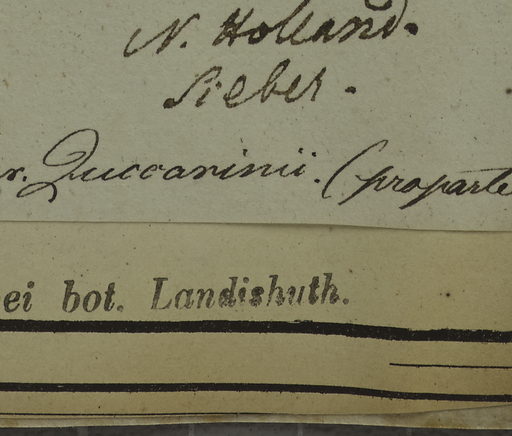 N. Holland.
Sieber.
r. Zuccarinii. (proparte
ei bot. Landishuth.